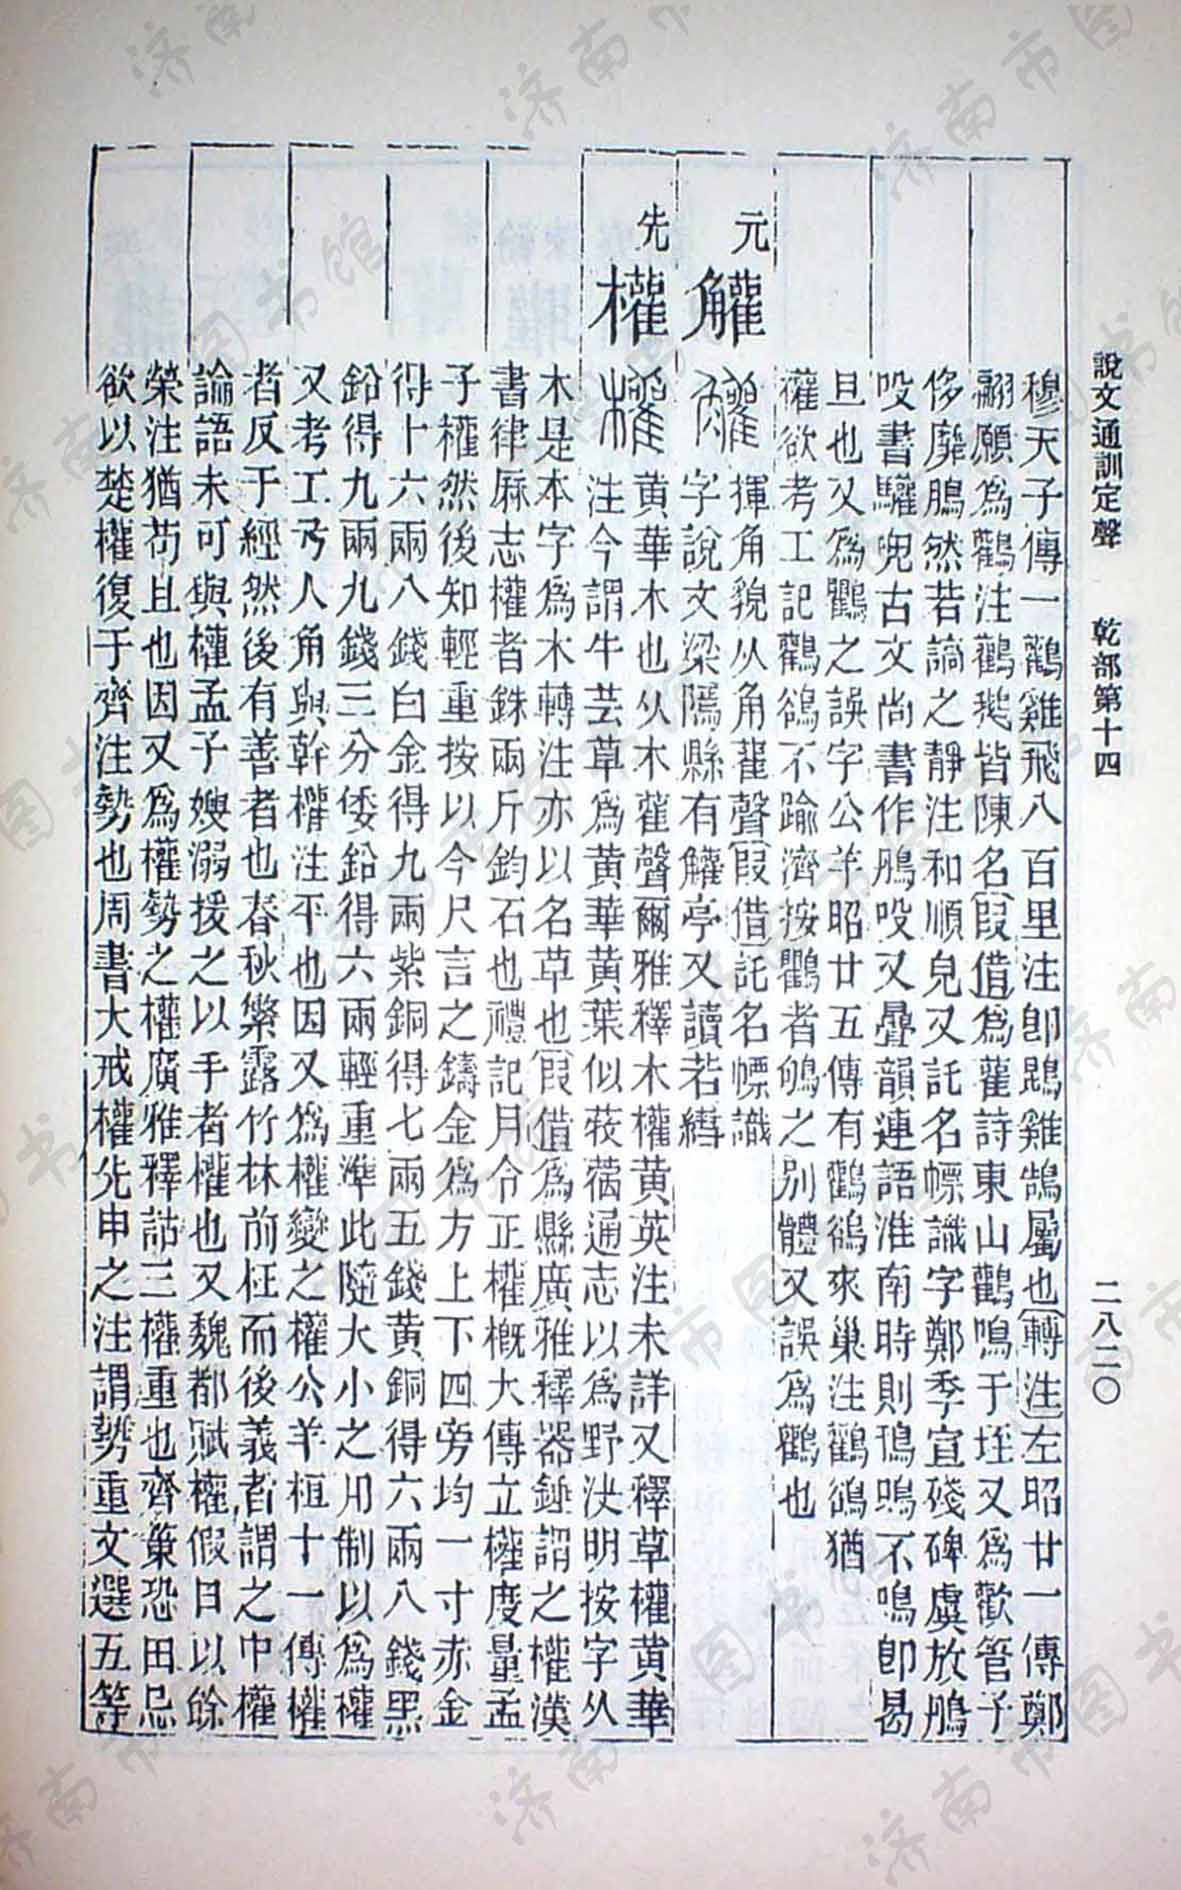 說文通訓定聲　乾部第十四　二八二〇
穆天子傳一鸛雞飛八百里注卽鵾雞鵠屬也轉注左昭廿一傳鄭
翩願爲鸛注鸛鵝皆陳名叚借爲雚詩東山鸛鳴于垤又爲歡管子
侈靡鵰然若謞之靜注和順皃又託名幖識字鄭季宣殘碑虞放鵰
吺書驩兜古文尚書作鵰吺又曡韻連語淮南時則鳱鴠不鳴卽曷
旦也又爲鸜之誤字公羊昭廿五傳有鸛鵒來巢注鸛鵒猶
權欲考工記鸛鵒不踰濟按鸜者鴝之別體又誤爲鸛也
元
觿 揮角皃从角雚聲叚借託名幖識
字說文梁隱縣有觿亭又讀若繕
先
權 黃華木也从木雚聲爾雅釋木權黃英注未詳又釋草權黃華
注今謂牛芸草爲黃華黃葉似荍蓿通志以爲野決明按字从
木是本字爲木轉注亦以名草也叚借爲縣廣雅釋器錘謂之權漢
書律厤志權者銖兩斤鈞石也禮記月令正權槪大傳立權度量孟
子權然後知輕重按以今尺言之鑄金爲方上下四旁均一寸赤金
得十六兩八錢白金得九兩紫銅得七兩五錢黃銅得六兩八錢黑
鉛得九兩九錢三分倭鉛得六兩輕重準此隨大小之用制以爲權
又考工弓人角與幹權注平也因又爲權變之權公羊桓十一傳權
者反于經然後有善者也春秋繁露竹林前枉而後義者謂之中權
論語未可與權孟子嫂溺援之以手者權也又魏都賦權假日以餘
榮注猶苟且也因又爲權勢之權廣雅釋詁三權重也齊策恐田忌
欲以楚權復于齊注勢也周書大戒權先申之注謂勢重文選五等